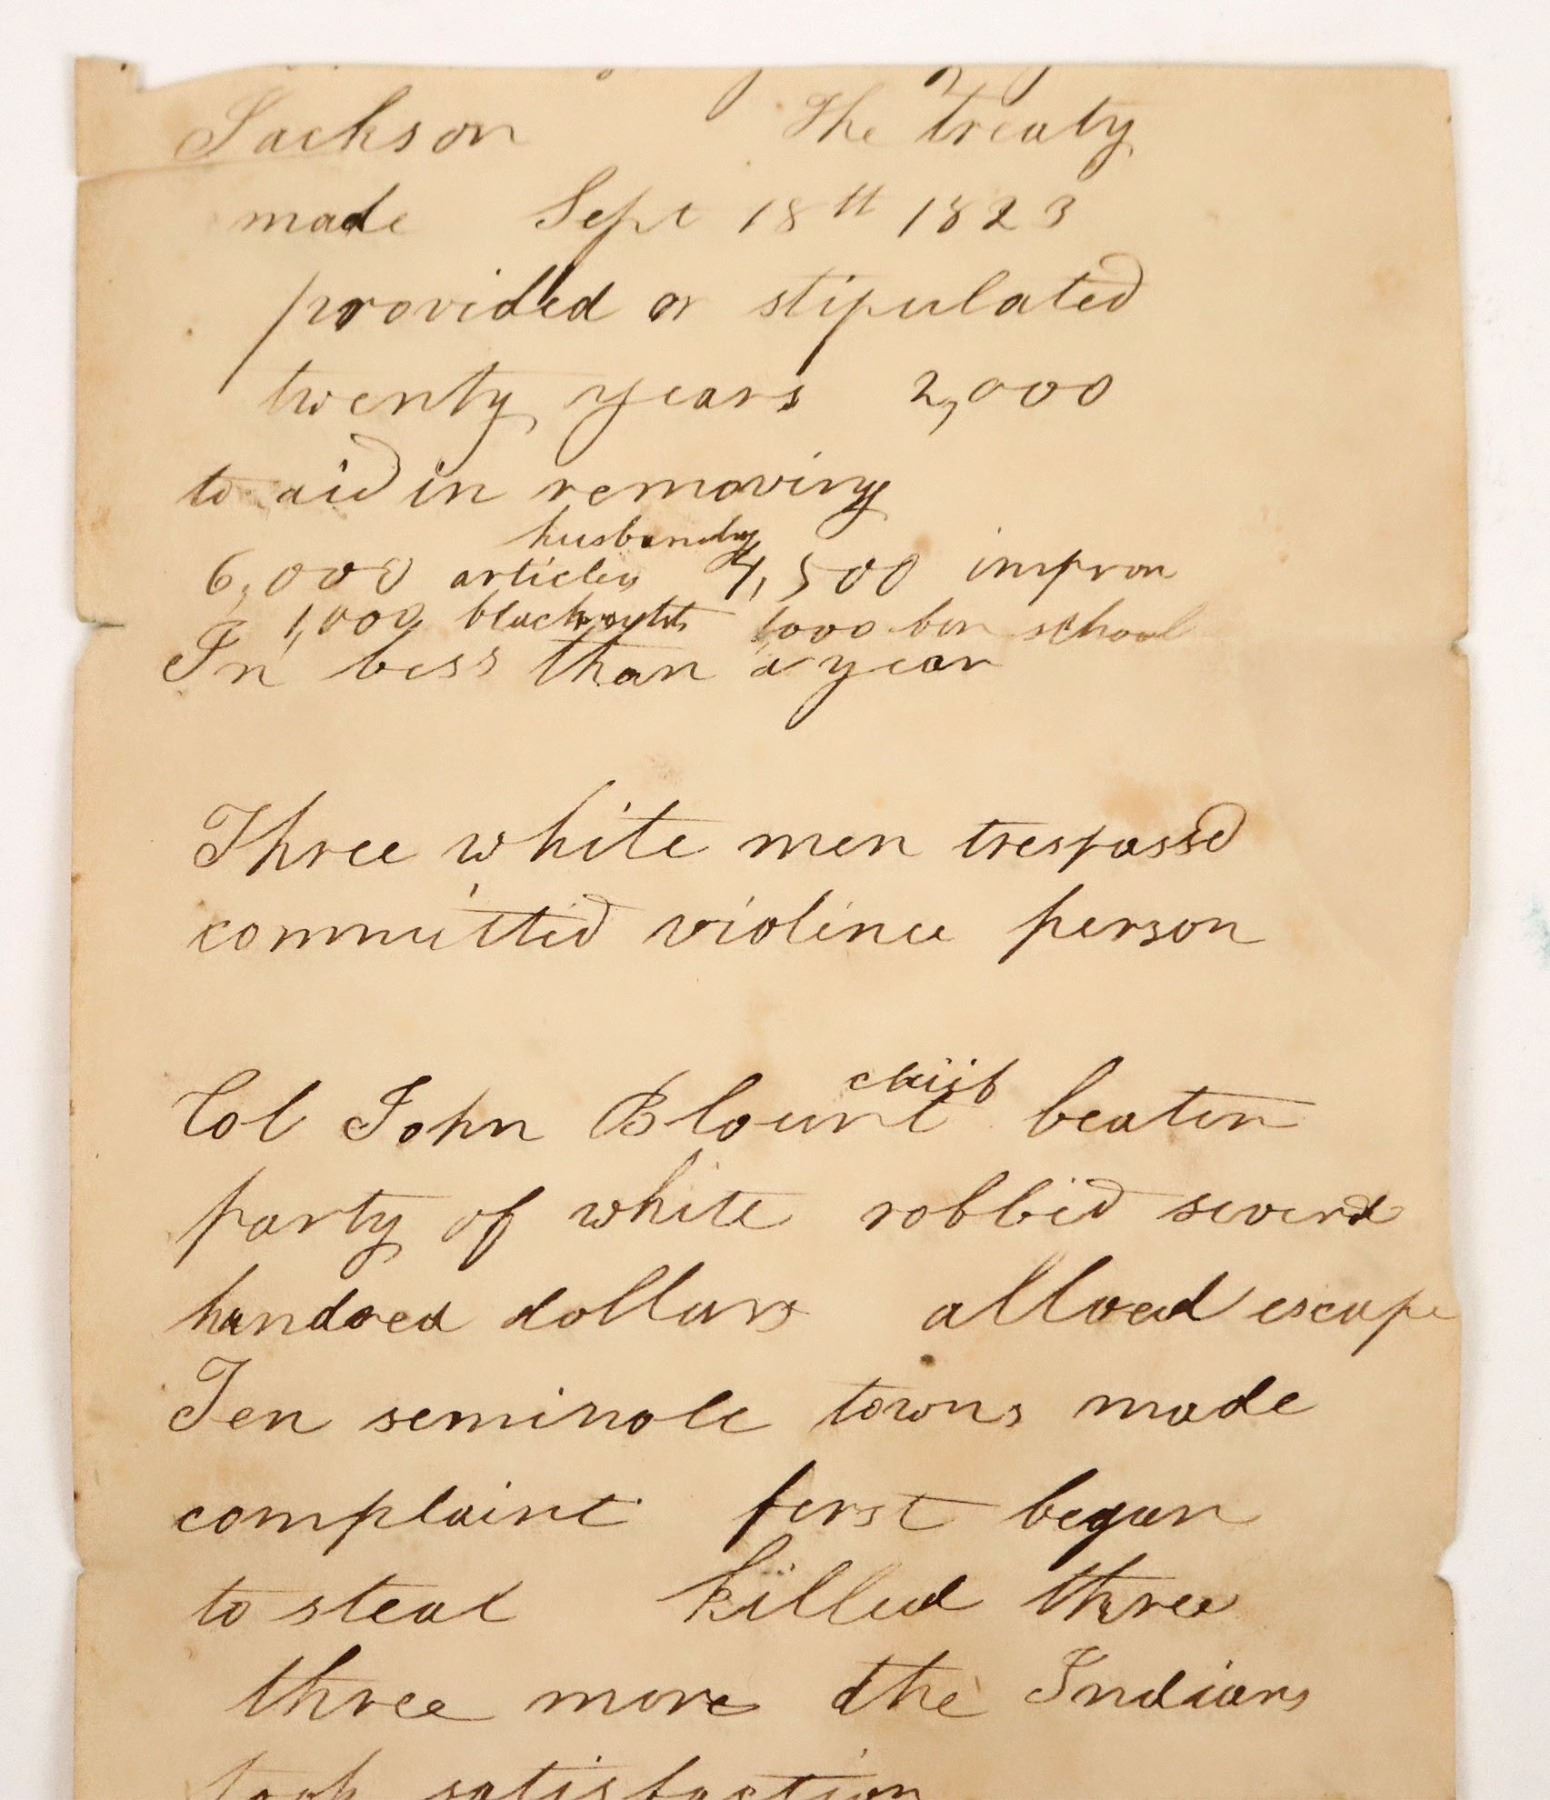 Jackson The treaty
made Sept 18tt 1823
provided or stipulated
twenty years 2,000
to aid in removing
husbandry
6,000 articles 4,500 improv
1,000 1000 for school
In less than a year
Three white men trespassd
committid violince person
chiif
Col John Blount beaten
party of white robbid
hundred dollars allowed escape
Ten seminole towns made
complaint first began
to steal killed three
three more the Indians
took satisfaction